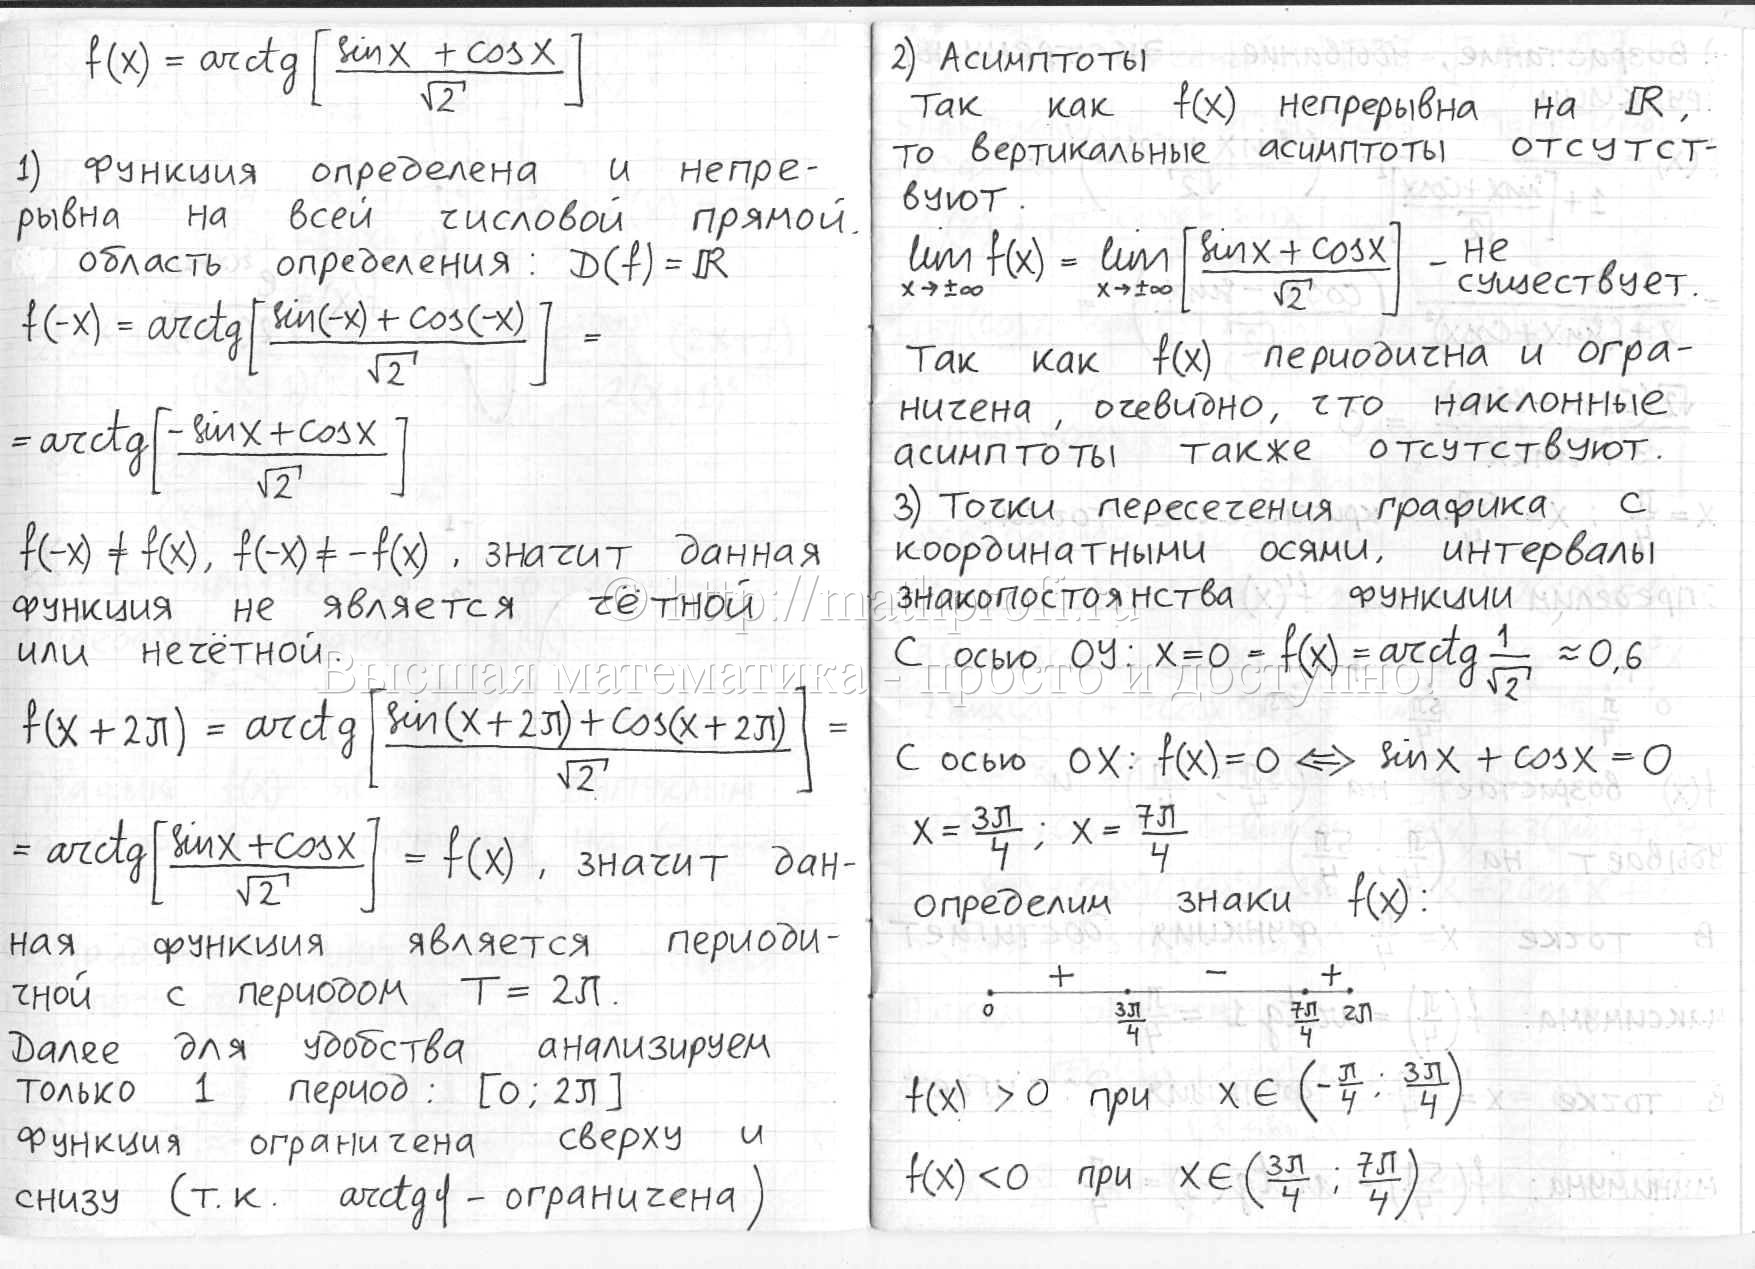 f(x) = arctg[(sinx + cosx)/√2]
1) Функция определена и непре-
рывна на всей числовой прямой.
область определения: D(f) = ℝ
f(-x) = arctg[(sin(-x) + cos(-x))/√2] =
= arctg[(-sinx + cosx)/√2]
f(-x) ≠ f(x), f(-x) ≠ -f(x), значит данная
функция не является чётной
или нечётной.
f(x + 2π) = arctg[(sin(x + 2π) + cos(x + 2π))/√2] =
= arctg[(sinx + cosx)/√2] = f(x), значит дан-
ная функция является периоди-
чной с периодом T = 2π.
Далее для удобства анализируем
только 1 период: [0; 2π]
Функция ограничена сверху и
снизу (т.к. arctg - ограничена)
2) Асимптоты
Так как f(x) непрерывна на ℝ,
то вертикальные асимптоты отсутст-
вуют.
lim x→±∞ f(x) = lim x→±∞ [(sinx + cosx)/√2] - не
существует.
Так как f(x) периодична и огра-
ничена, очевидно, что наклонные
асимптоты также отсутствуют.
3) Точки пересечения графика с
координатными осями, интервалы
знакопостоянства функции
С осью OY: x=0 - f(x) = arctg 1/√2 ≈ 0,6
С осью OX: f(x) = 0 ⟺ sinx + cosx = 0
x = 3π/4; x = 7π/4
определим знаки f(x):
+ - +
0 3π/4 7π/4 2π
f(x) > 0 при x ∈ (-π/4; 3π/4)
f(x) < 0 при x ∈ (3π/4; 7π/4)
© http://mathprofi.ru
Высшая математика - просто и доступно!